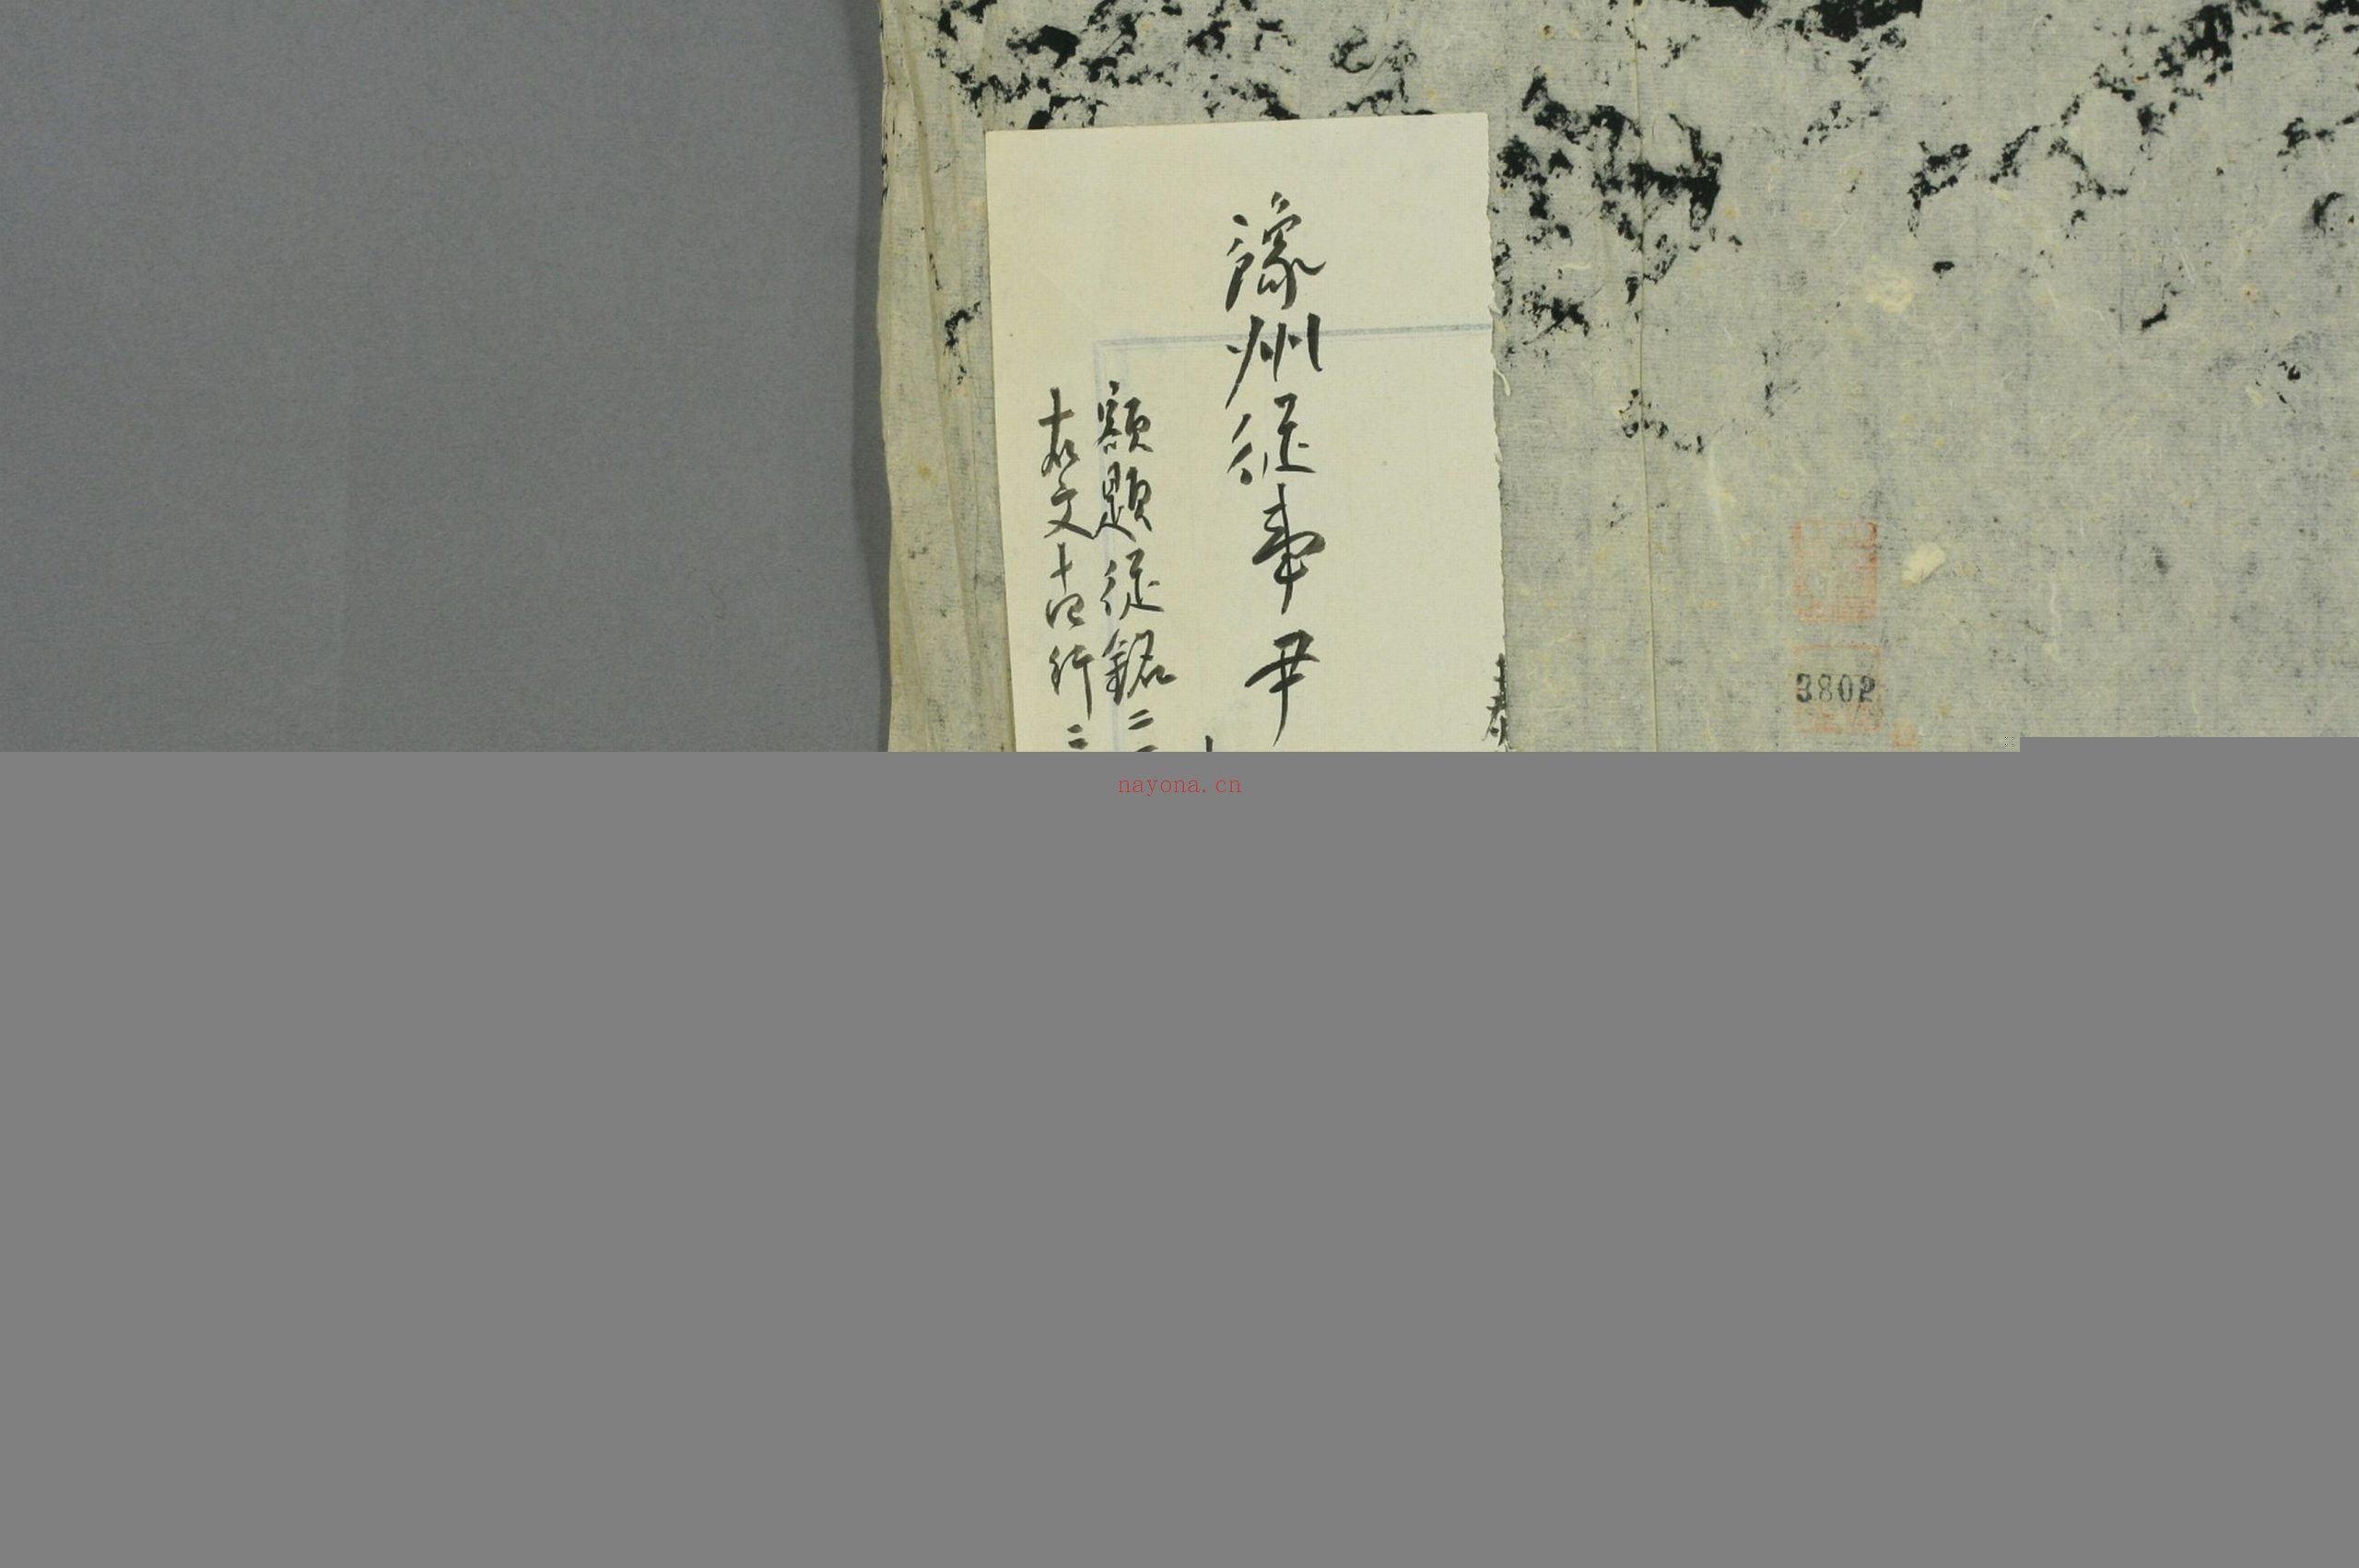 豫州從事尹
額題從銘二
文十四行二
3802
nayona.cn